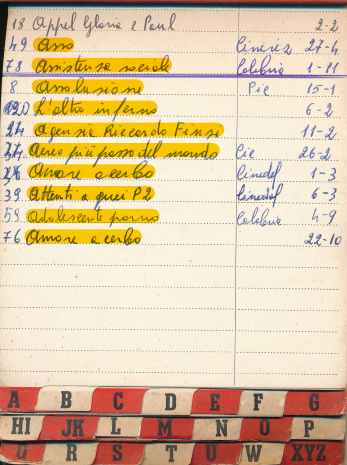 18 Appel Gloria e Paul 2-2
49 Asso Cineriz 27-4
78 Assistenza sociale Colobia 1-11
8 Assoluzione Pie 15-1
L'altro inferno 6-2
Agenzia Riccardo Finzi 11-2
Aereo più pazzo del mondo Cic 26-2
Amore acerbo Cinedif 1-3
39 Attenti a quei P2 Cinedif 6-3
59 Adolescente porno Colobia 4-9
76 Amore acerbo 22-10
A B C D E F G
HI JK L M N O P
Q R S T U W XYZ